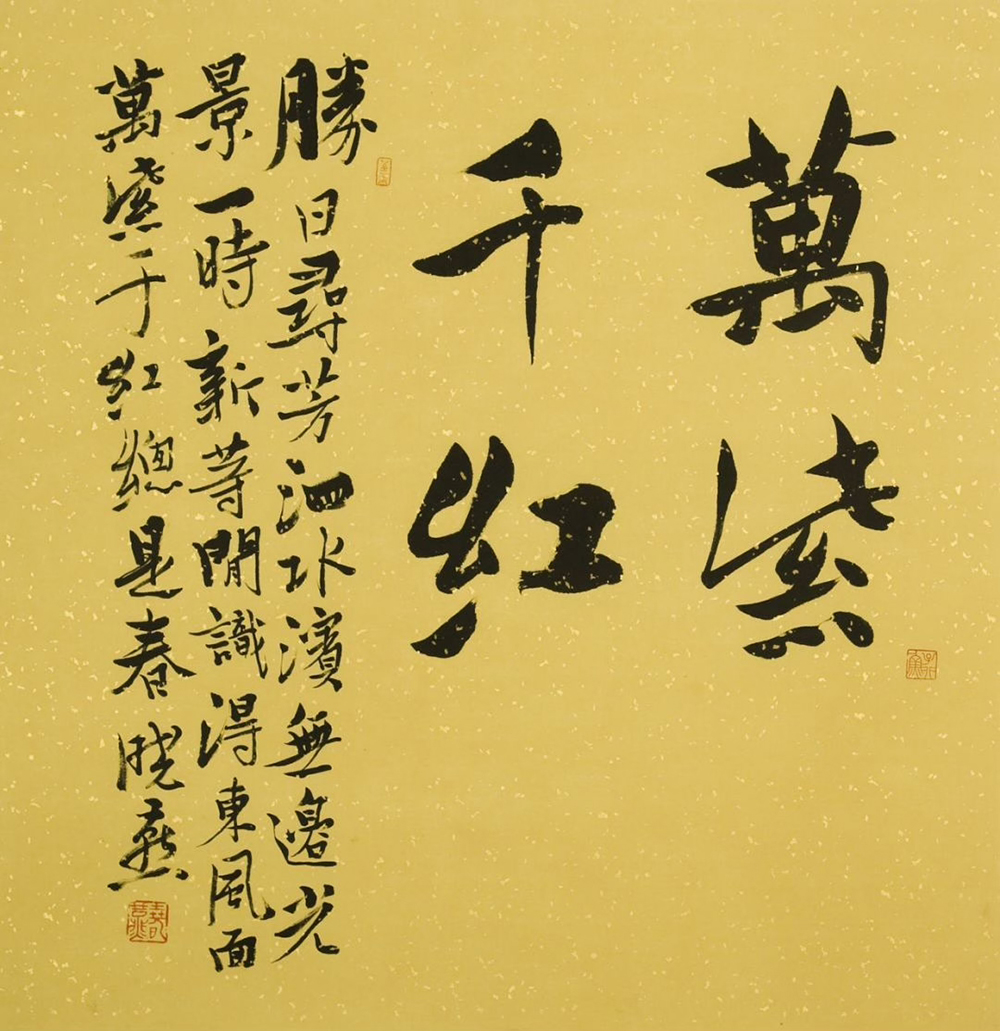 萬紫
千紅
勝日尋芳泗水濱無邊光
景一時新等閒識得東風面
萬紫千紅總是春晓燕